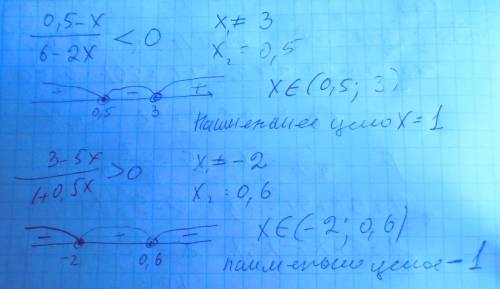 (0,5-x)/(6-2x) < 0
x₁ ≠ 3
x₂ = 0,5
+ - +
0,5 3
x∈(0,5; 3)
Наименьшее цело x=1
(3-5x)/(1+0,5x) > 0
x₁ ≠ -2
x₂ = 0,6
- + -
-2 0,6
x∈(-2; 0,6)
наименьшо целое -1